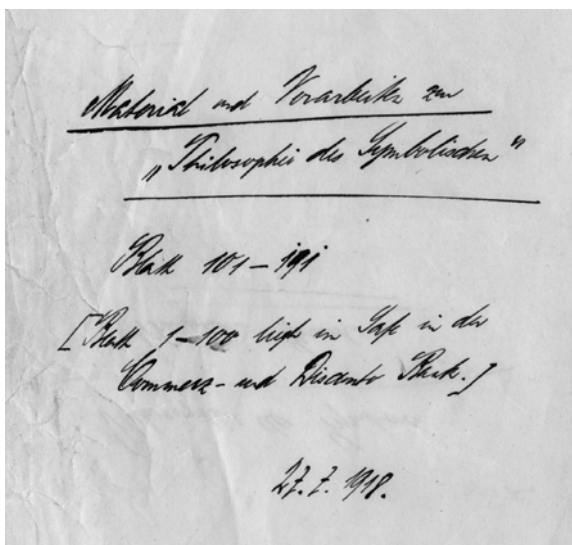 Material und Vorarbeiten zur
„Philosophie des Symbolischen"
Blatt 101 – 191
[Blatt 1–100 liegt im Safe in der
Commerz- und Disconto Bank.]
27. 7. 1918.